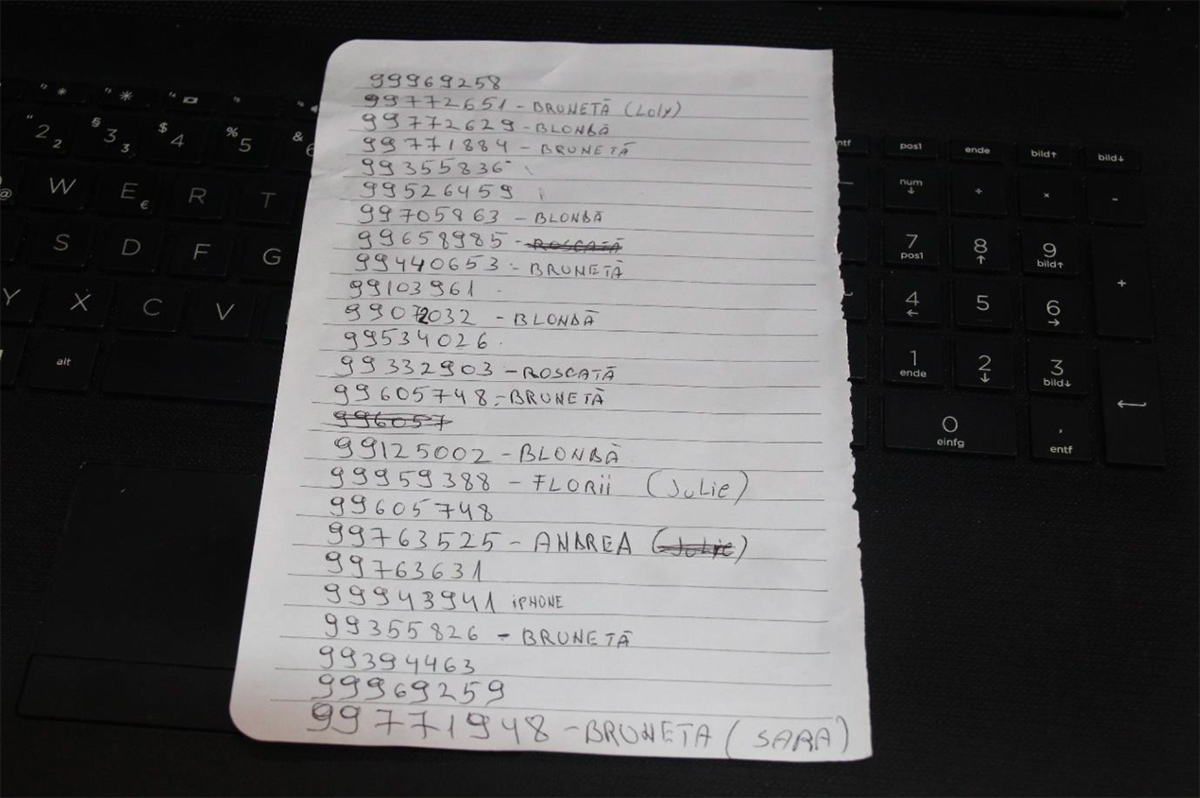 99969258
99772651 - BRUNETĂ (Loly)
99772629 - BLONDĂ
99771884 - BRUNETĂ
99355836
99526459
99705863 - BLONDĂ
99658985 - ROSCATĂ
99440653 - BRUNETĂ
99103961
99072032 - BLONDĂ
99534026
99332903 - ROSCATĂ
99605748 - BRUNETĂ
996057
99125002 - BLONDĂ
99959388 - FLORII (JULIE)
99605748
99763525 - ANDREA (Julie)
99763631
99943941 iPHONE
99355826 - BRUNETĂ
99394463
99969259
99771948 - BRUNETA (SARA)
" * " *
" 2 2 § 3 3 $ 4 % 5 & 6
@ W E € R T
S D F G
Y X C V
alt
ntf pos1 ende bild↑ bild↓
num ↓ ÷ × -
7 pos1 8 ↑ 9 bild↑
+
4 ← 5 6 →
1 ende 2 ↓ 3 bild↓
0 einfg , entf